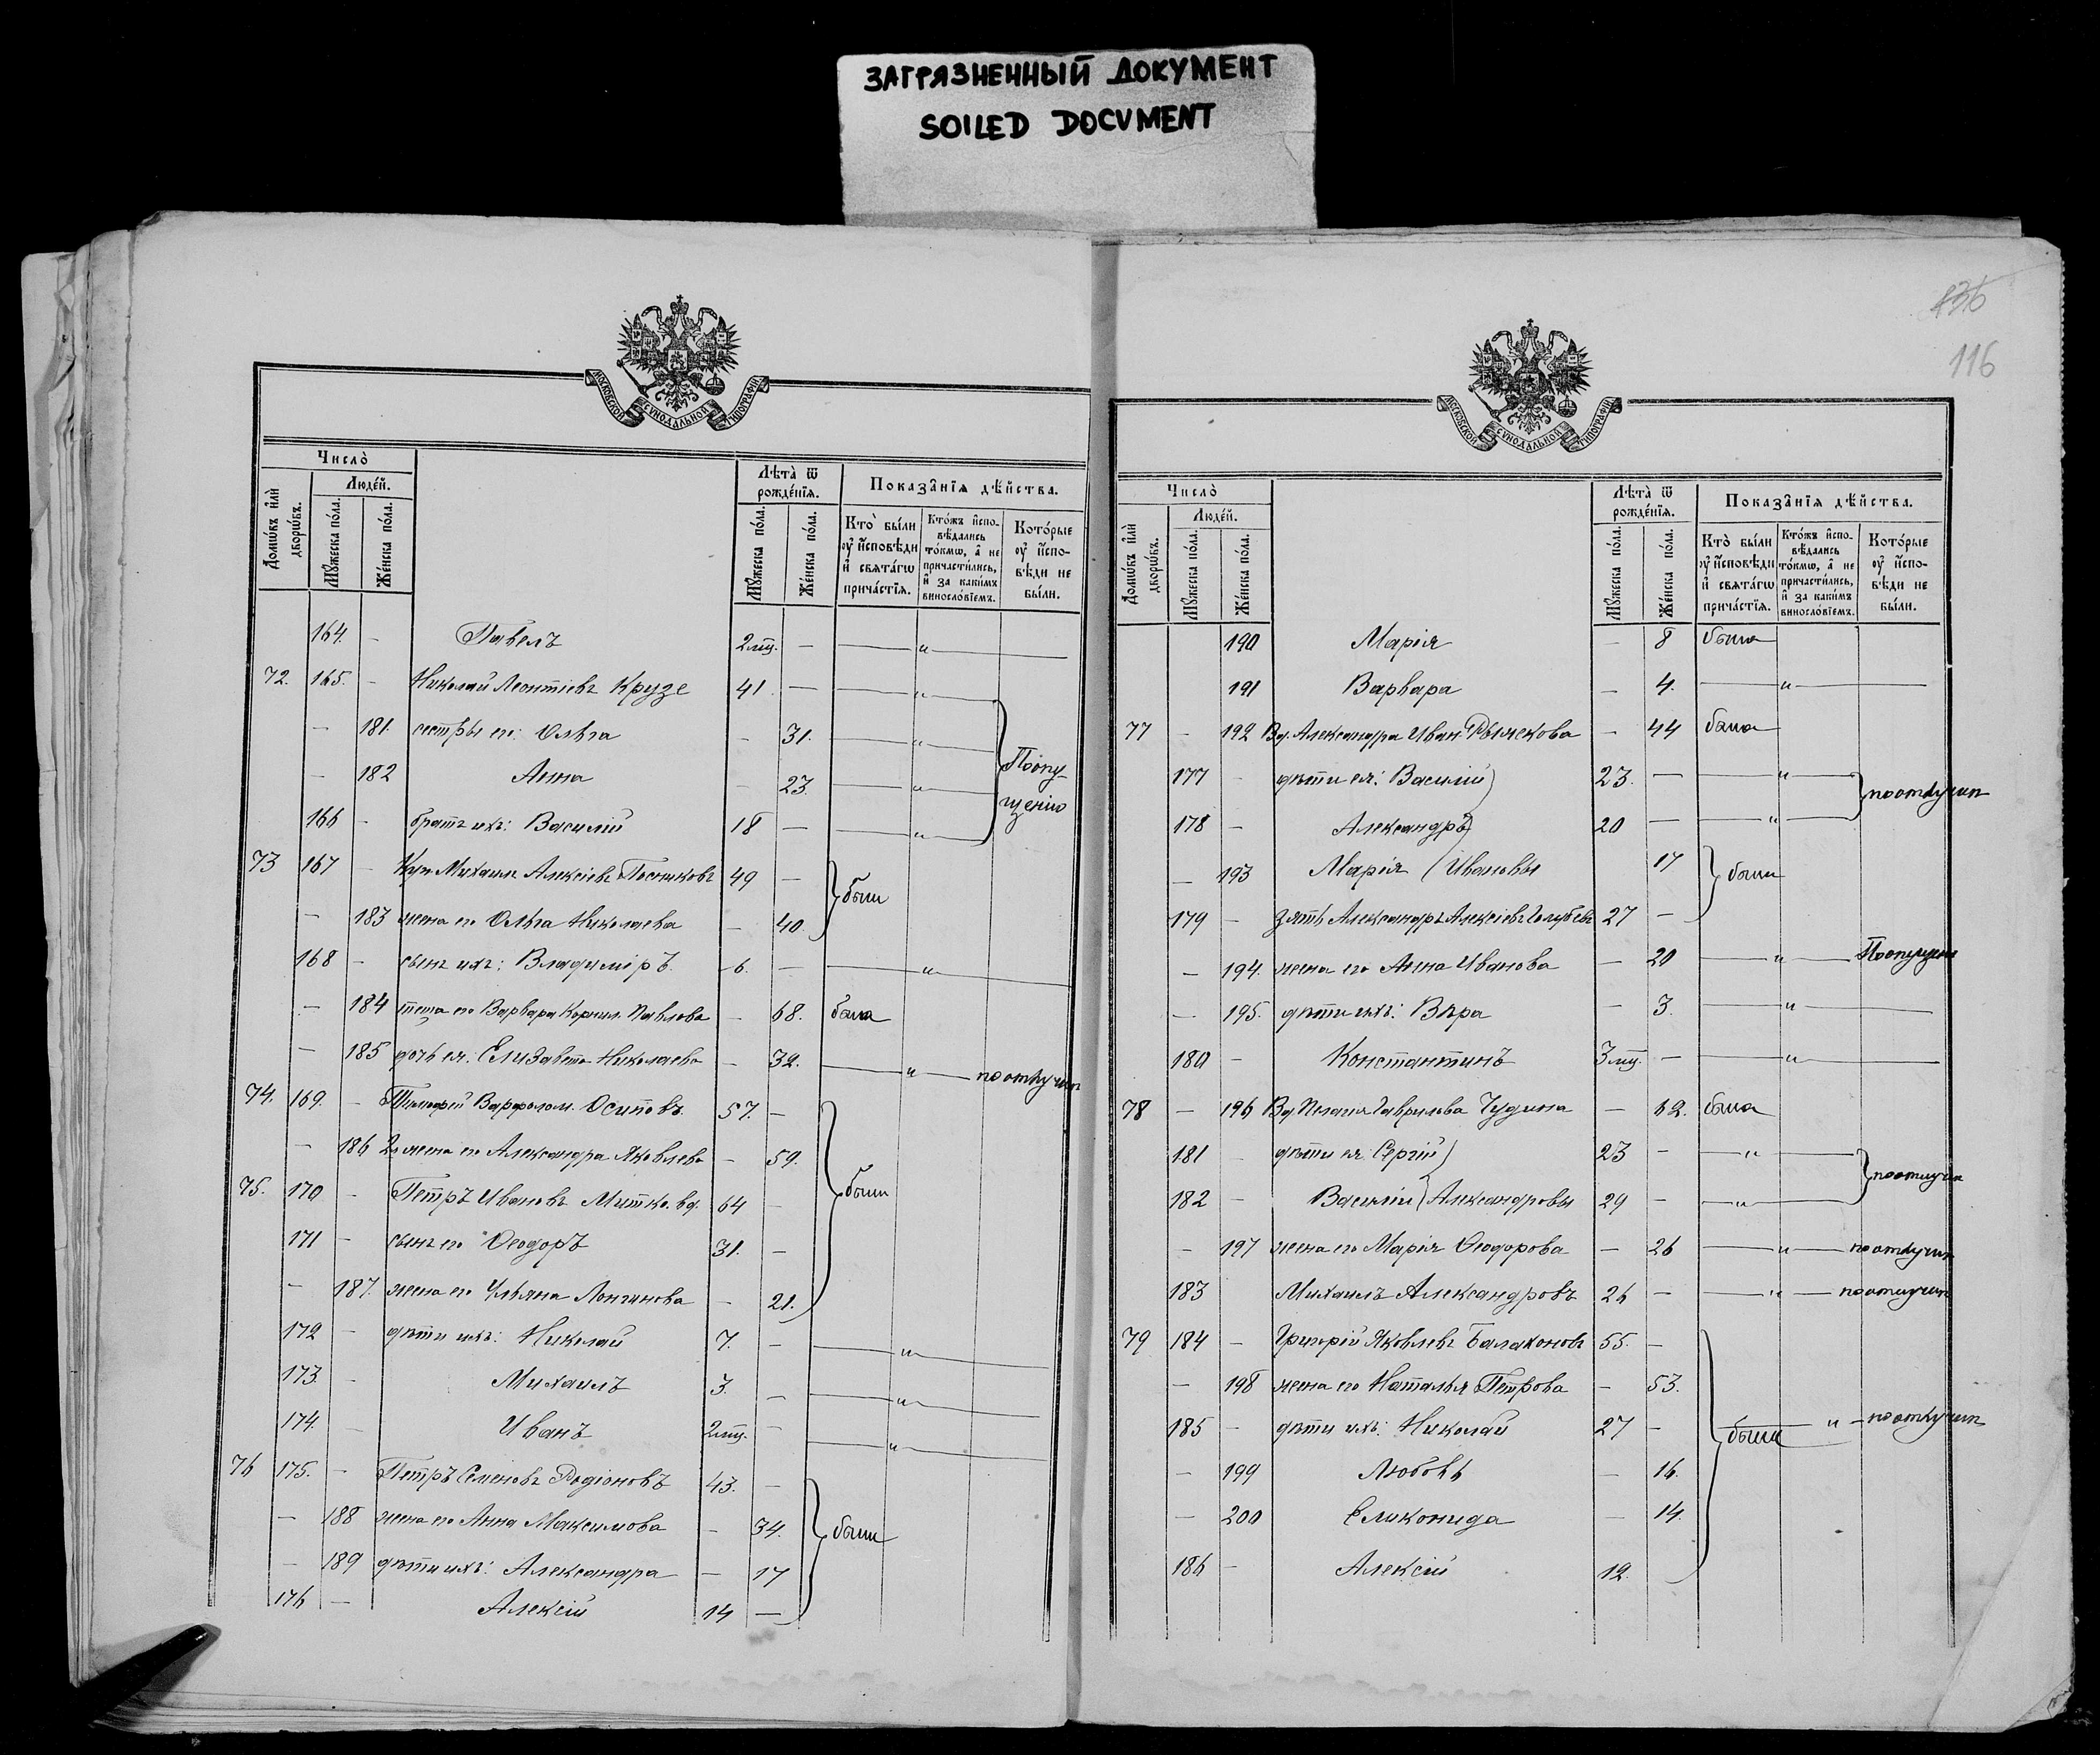 ЗАГРЯЗНЕННЫЙ ДОКУМЕНТ
SOILED DOCUMENT
МОСКОВСКОЙ СѴНОДАЛЬНОЙ ТИПОГРАФІИ
Число̀
Домѡ́въ и҆лѝ дворѡ́въ.
Люде́й.
Мꙋ́жеска по́ла.
Же́нска по́ла.
Лѣ́та ѿ рожде́нїѧ.
Мꙋ́жеска по́ла.
Же́нска по́ла.
Показа̑нїѧ дѣ́йства.
Кто̀ бы́ли ᲂу҆ и҆сповѣди и҆ свѧта́гѡ прича́стїѧ.
Кто́жъ и҆спо-вѣ́дались то́кмѡ, а҆ не причасти́лись, и҆ за каки́мъ виносло́вїемъ.
Кото́рые ᲂу҆ и҆спо-вѣди не бы́ли.
164. - Павелъ 2 мц. - "
72. 165. - Николай Леонтіевъ Крузе 41. - "
- 181. сестры его: Ольга - 31. "
- 182 Анна - 23. " Поопу-
166 - братъ ихъ: Василій 18 - " щенію
73 167 - Куп. Михаилъ Алексіевъ Постниковъ 49 -
- 183 жена его Ольга Николаева - 40. были
168 - сынъ ихъ: Владиміръ 6. - "
- 184 теща его Варвара Корнил. Павлова - 68. была
- 185 дочь ея. Елизавета Николаева - 32. " по отлучкѣ
74. 169. - Тимофей Варфолом. Осиповъ 57. -
- 186 2я жена его Александра Яковлева - 59.
75. 170 - Петръ Ивановъ Митко. вд. 64 - были
171 - сынъ его Ѳеодоръ 31. -
- 187. жена его Ульяна Лонгинова - 21.
172 - дѣти ихъ: Николай 7. - "
173. - Михаилъ 3. - "
174. - Иванъ 2 мц. - "
76 175. - Петръ Семеновъ Родіоновъ 43. -
- 188 жена его Анна Максимова - 34. были
- 189 дѣти ихъ: Александра - 17
176 - Алексій 14 -
136
116
МОСКОВСКОЙ СѴНОДАЛЬНОЙ ТИПОГРАФІИ
Число̀
Домѡ́въ и҆лѝ дворѡ́въ.
Люде́й.
Мꙋ́жеска по́ла.
Же́нска по́ла.
Лѣ́та ѿ рожде́нїѧ.
Мꙋ́жеска по́ла.
Же́нска по́ла.
Показа̑нїѧ дѣ́йства.
Кто̀ бы́ли ᲂу҆ и҆сповѣди и҆ свѧта́гѡ прича́стїѧ.
Кто́жъ и҆спо-вѣ́дались то́кмѡ, а҆ не причасти́лись, и҆ за каки́мъ виносло́вїемъ.
Кото́рые ᲂу҆ и҆спо-вѣди не бы́ли.
190 Марія - 8 была
191 Варвара - 4. "
77 - 192 Вд. Александра Иван. Рычкова - 44 была
177 - дѣти ея: Василій 23. - " по отлучкѣ
178 - Александръ 20 - "
- 193 Марія Ивановы 17 были
179 - зять Александръ Алексіевъ Голубевъ 27 -
- 194. жена его Анна Иванова - 20 " Поопущен
- 195. дѣти ихъ: Вѣра - 3. "
180 - Константинъ 3 мц. - "
78 - 196 Вд. Пелагія Гаврилова Чудина - 62. была
181 - дѣти ея: Сергій 23 - " по отлучкѣ
182 - Василій Александровы 29 - "
- 197 жена его Марія Ѳеодорова - 26 " по отлучкѣ
183 Михаилъ Александровъ 26 - " по отлучкѣ
79 184 - Григорій Яковлевъ Балахоновъ 55. -
- 198 жена его Наталья Петрова - 53.
185 - дѣти ихъ: Николай 27 - были " по отлучкѣ
- 199 Любовь - 16.
- 200 Еликонида - 14.
186 - Алексій 12.